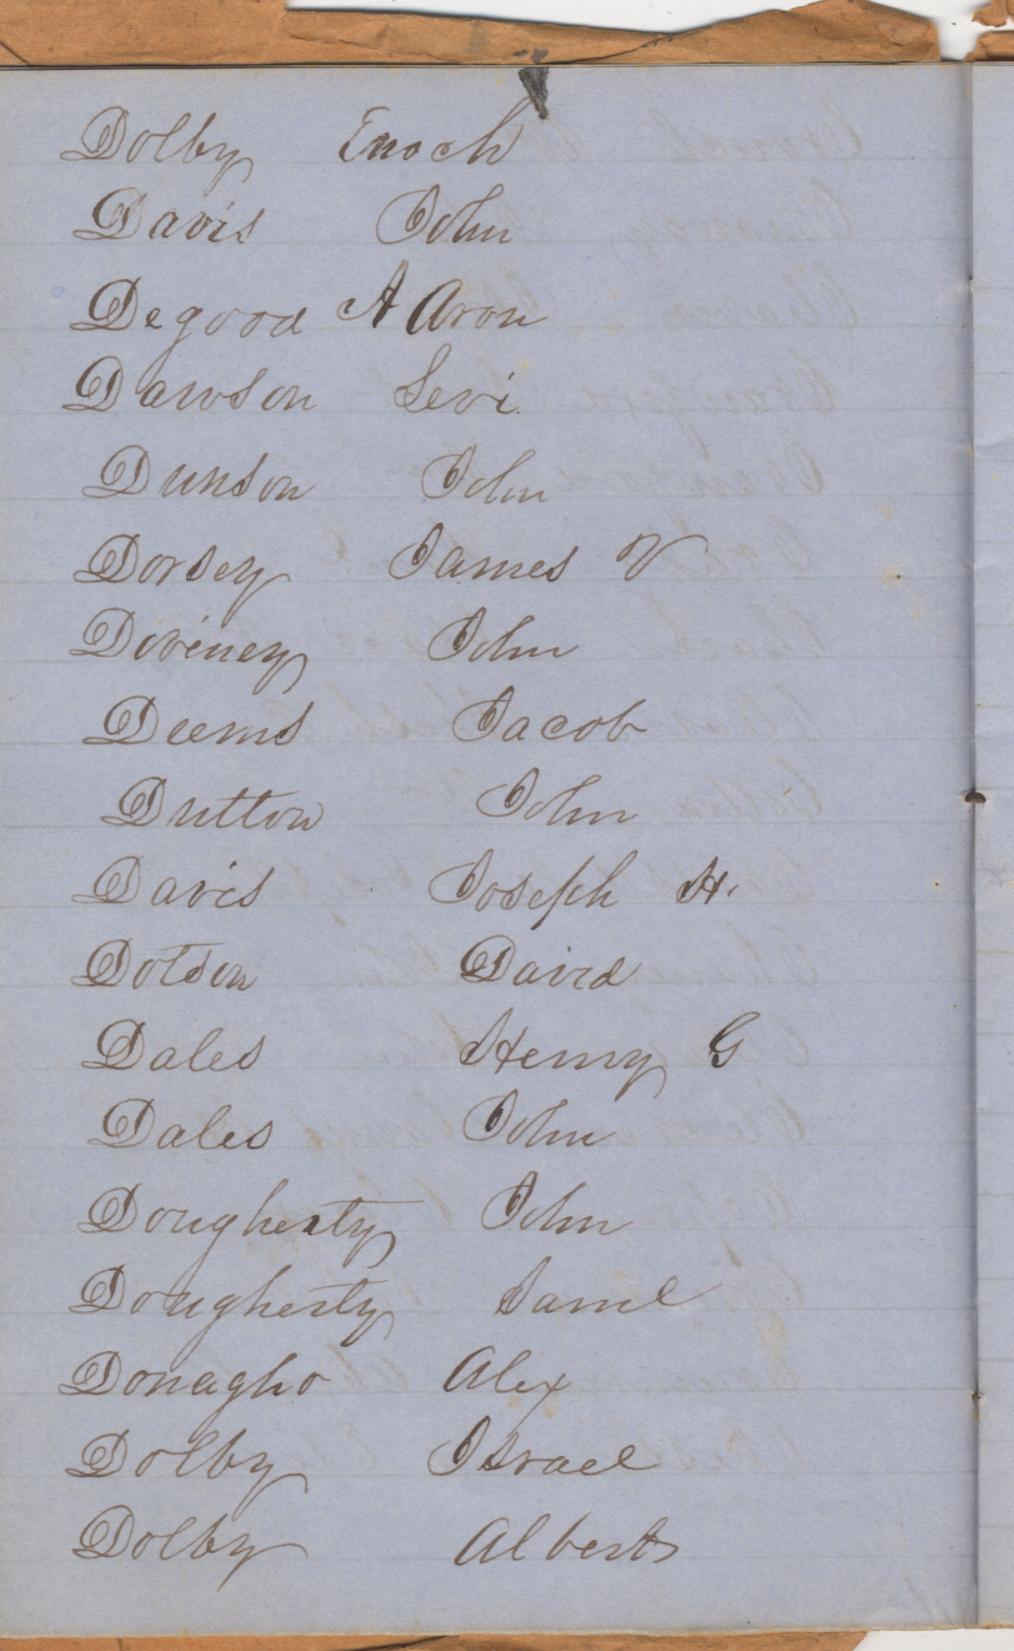 Dolby Enoch
Davis John
Degood A Aron
Dawson Levi
Dunson John
Dorsey James V
Doviney John
Deems Jacob
Dutton John
Davis Joseph H.
Dotson David
Dales Henry G
Dales John
Dougherty John
Dougherty Saml
Donagho Alex
Dolby Israel
Dolby Albert